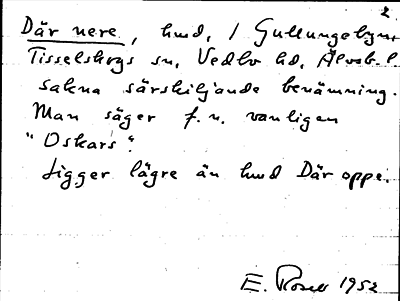 2
Där nere, hmd, 1 Gullungebyn,
Tisselskogs sn, Vedbo hd, Älvsb. l
sakna särskiljande benämning.
Man säger f. n. vanligen
"Oskars".
Ligger lägre än hmd Där oppe.
E. Rosell 1952